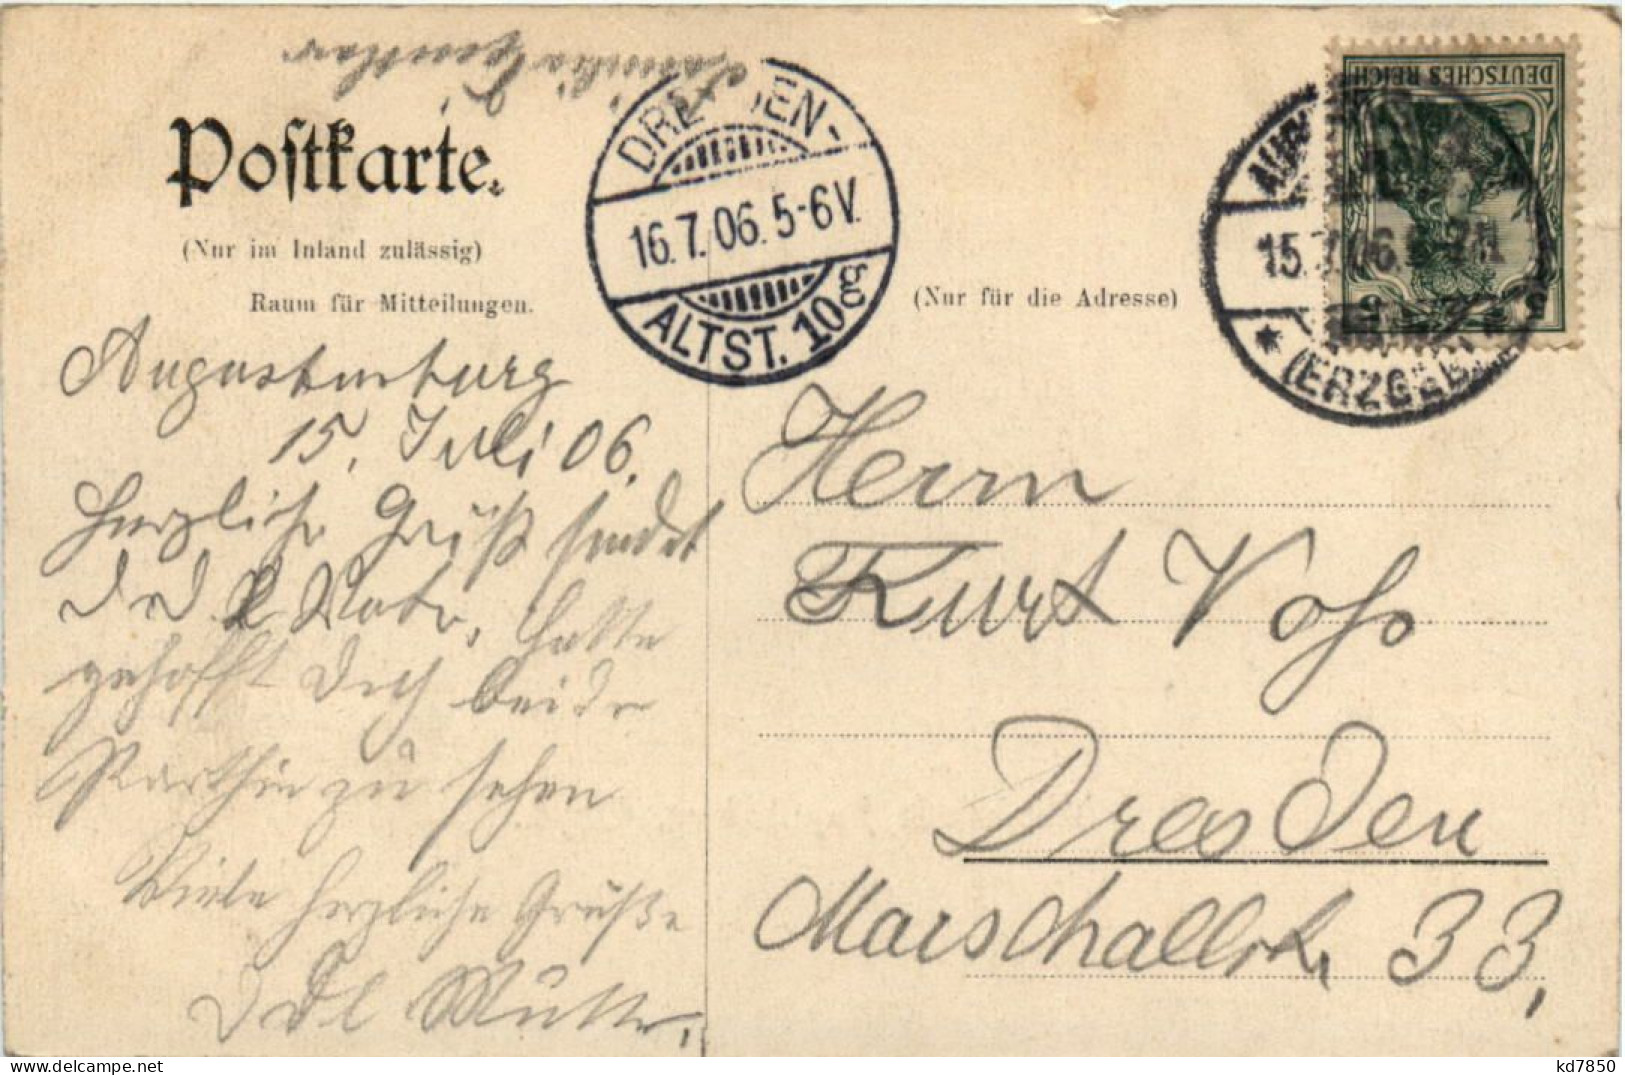 Familie Günther
Postkarte.
(Nur im Inland zulässig)
Raum für Mitteilungen.
(Nur für die Adresse)
DRESDEN-
16.7.06. 5-6V.
ALTST. 10 g
DEUTSCHES REICH
5 5
15.7.06.
* (ERZGEB.)
Augustusburg
15. Juli 06.
Herzliche Grüße sendet
Dir Vater, hatte
gehofft Dich beide
zu sehen
Viele herzliche Grüße
Mutter,
Herrn
Kurt Voß
Dresden
Marschallstr. 33,
kd7850